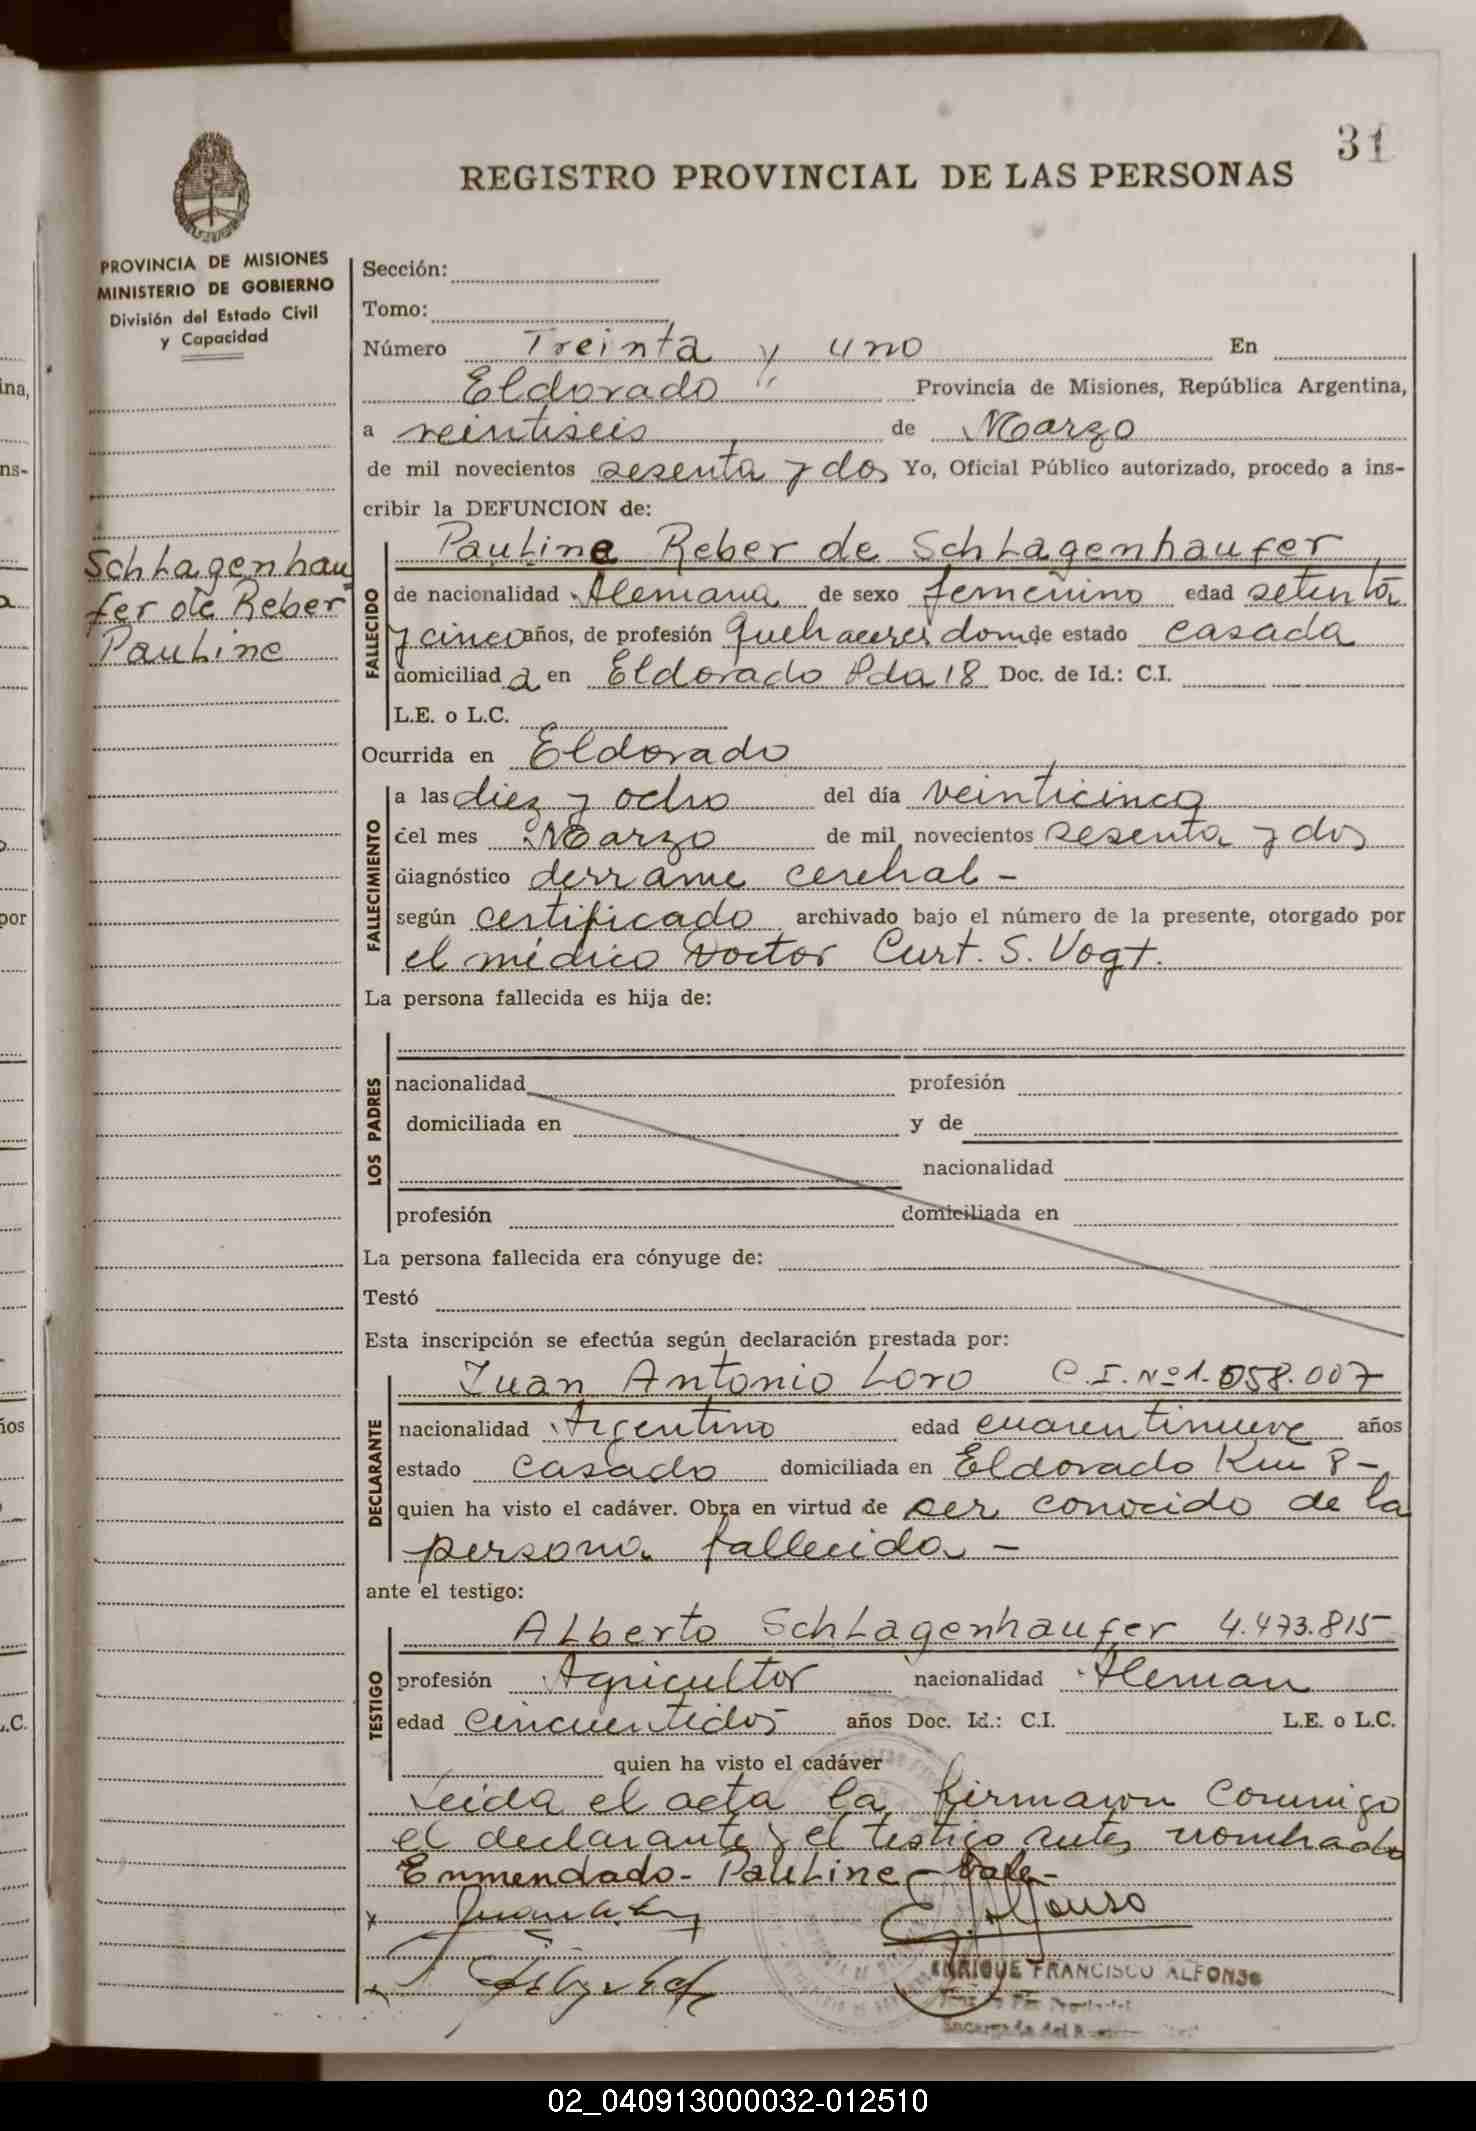 31
REGISTRO PROVINCIAL DE LAS PERSONAS
PROVINCIA DE MISIONES
MINISTERIO DE GOBIERNO
División del Estado Civil
y Capacidad
Schlagenhau
fer de Reber
Pauline
Sección:
Tomo:
Número Treinta y uno En
Eldorado " Provincia de Misiones, República Argentina,
a veintiseis de Marzo
de mil novecientos sesenta y dos Yo, Oficial Público autorizado, procedo a ins-
cribir la DEFUNCION de:
FALLECIDO
Pauline Reber de Schlagenhaufer
de nacionalidad Alemana de sexo femenino edad setenta
y cinco años, de profesión quehaceres dom. de estado casada
domiciliad a en Eldorado Pda 18 Doc. de Id.: C.I.
L.E. o L.C.
Ocurrida en Eldorado
FALLECIMIENTO
a las diez y ocho del día veinticinco
del mes Marzo de mil novecientos sesenta y dos
diagnóstico derrame cerebral -
según certificado archivado bajo el número de la presente, otorgado por
el médico Doctor Curt. S. Vogt.
La persona fallecida es hija de:
LOS PADRES
nacionalidad profesión
domiciliada en y de
nacionalidad
profesión domiciliada en
La persona fallecida era cónyuge de:
Testó
Esta inscripción se efectúa según declaración prestada por:
DECLARANTE
Juan Antonio Loro C.I. Nº 1.058.007
nacionalidad Argentino edad cuarentinueve años
estado casado domiciliada en Eldorado Km 8 -
quien ha visto el cadáver. Obra en virtud de ser conocido de la
persona fallecida -
ante el testigo:
TESTIGO
Alberto Schlagenhaufer 4.473.815
profesión Agricultor nacionalidad Aleman
edad cincuentidos años Doc. Id.: C.I. L.E. o L.C.
quien ha visto el cadáver
Leida el acta la firmaron conmigo
el declarante y el testigo antes nombrado
Enmendado - Pauline - Vale -
E. Alfonso
ENRIQUE FRANCISCO ALFONSO
02_040913000032-012510